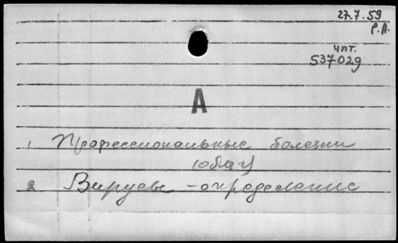 27.7.59
Р.А.
чит.
537029
А
1 Профессиональные болезни
(общ)
2 Вирусы - определение